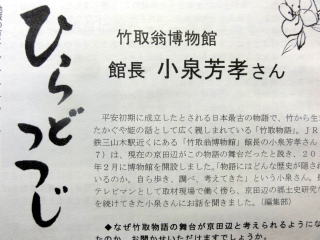 ひらどつつじ
竹取翁博物館
館長 小泉芳孝さん
平安初期に成立したとされる日本最古の物語で、竹から生
たかぐや姫の話として広く親しまれている「竹取物語」。JR
鉄三山木駅近くにある「竹取翁博物館」館長の小泉芳孝さん
7）は、現在の京田辺がこの物語の舞台だったと説き、20
年2月に博物館を開設しました。「物語にはどんな歴史が隠され
いるのか。自ら歩き、調べ、考えてきた」という小泉さん。長
テレビマンとして取材現場で働く傍ら、京田辺の郷土史研究
を続けてきた小泉さんにお話を聞きました。（編集部）
◆なぜ竹取物語の舞台が京田辺と考えられるようにな
たのか、お聞かせいただけますでしょうか。